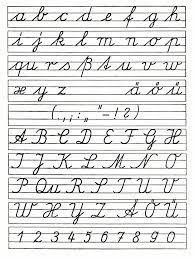 a b c d e f g h
i j k l m n o p
qu r s ß t u v w
x y z ä ö ü
( . , ; : „ “ - ! ? )
A B C D E F G H
I J K L M N O
P Qu R S T U V
W X Y Z Ä Ö Ü
1 2 3 4 5 6 7 8 9 0